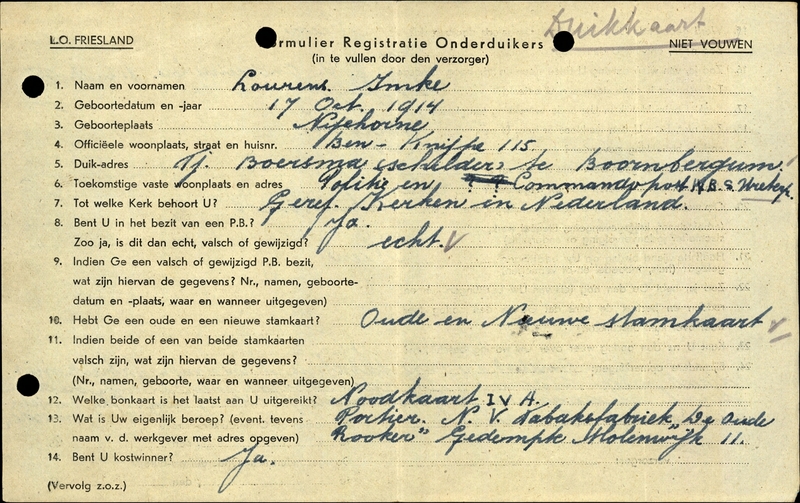 Duikkaart
L.O. FRIESLAND
Formulier Registratie Onderduikers
NIET VOUWEN
(in te vullen door den verzorger)
1. Naam en voornamen Lourens Imke
2. Geboortedatum en -jaar 17 Oct. 1914
3. Geboorteplaats Nijehorne
4. Officiëele woonplaats, straat en huisnr. Ben-Knijpe 115
5. Duik-adres Tj. Boersma (schilder) te Boornbergum.
6. Toekomstige vaste woonplaats en adres Politie en Commandopost N.B.S.
7. Tot welke Kerk behoort U? Geref. Kerken in Nederland.
8. Bent U in het bezit van een P.B.? Ja.
Zoo ja, is dit dan echt, valsch of gewijzigd? echt.
9. Indien Ge een valsch of gewijzigd P.B. bezit,
wat zijn hiervan de gegevens? Nr., namen, geboorte-
datum en -plaats, waar en wanneer uitgegeven)
10. Hebt Ge een oude en een nieuwe stamkaart? Oude en Nieuwe stamkaart
11. Indien beide of een van beide stamkaarten
valsch zijn, wat zijn hiervan de gegevens?
(Nr., namen, geboorte, waar en wanneer uitgegeven)
12. Welke bonkaart is het laatst aan U uitgereikt? Noodkaart IV A.
13. Wat is Uw eigenlijk beroep? (event. tevens Portier. N.V. Tabaksfabriek „De Oude
naam v. d. werkgever met adres opgeven) Rooker" Gedempte Molenwijk 11.
14. Bent U kostwinner? Ja.
(Vervolg z.o.z.)